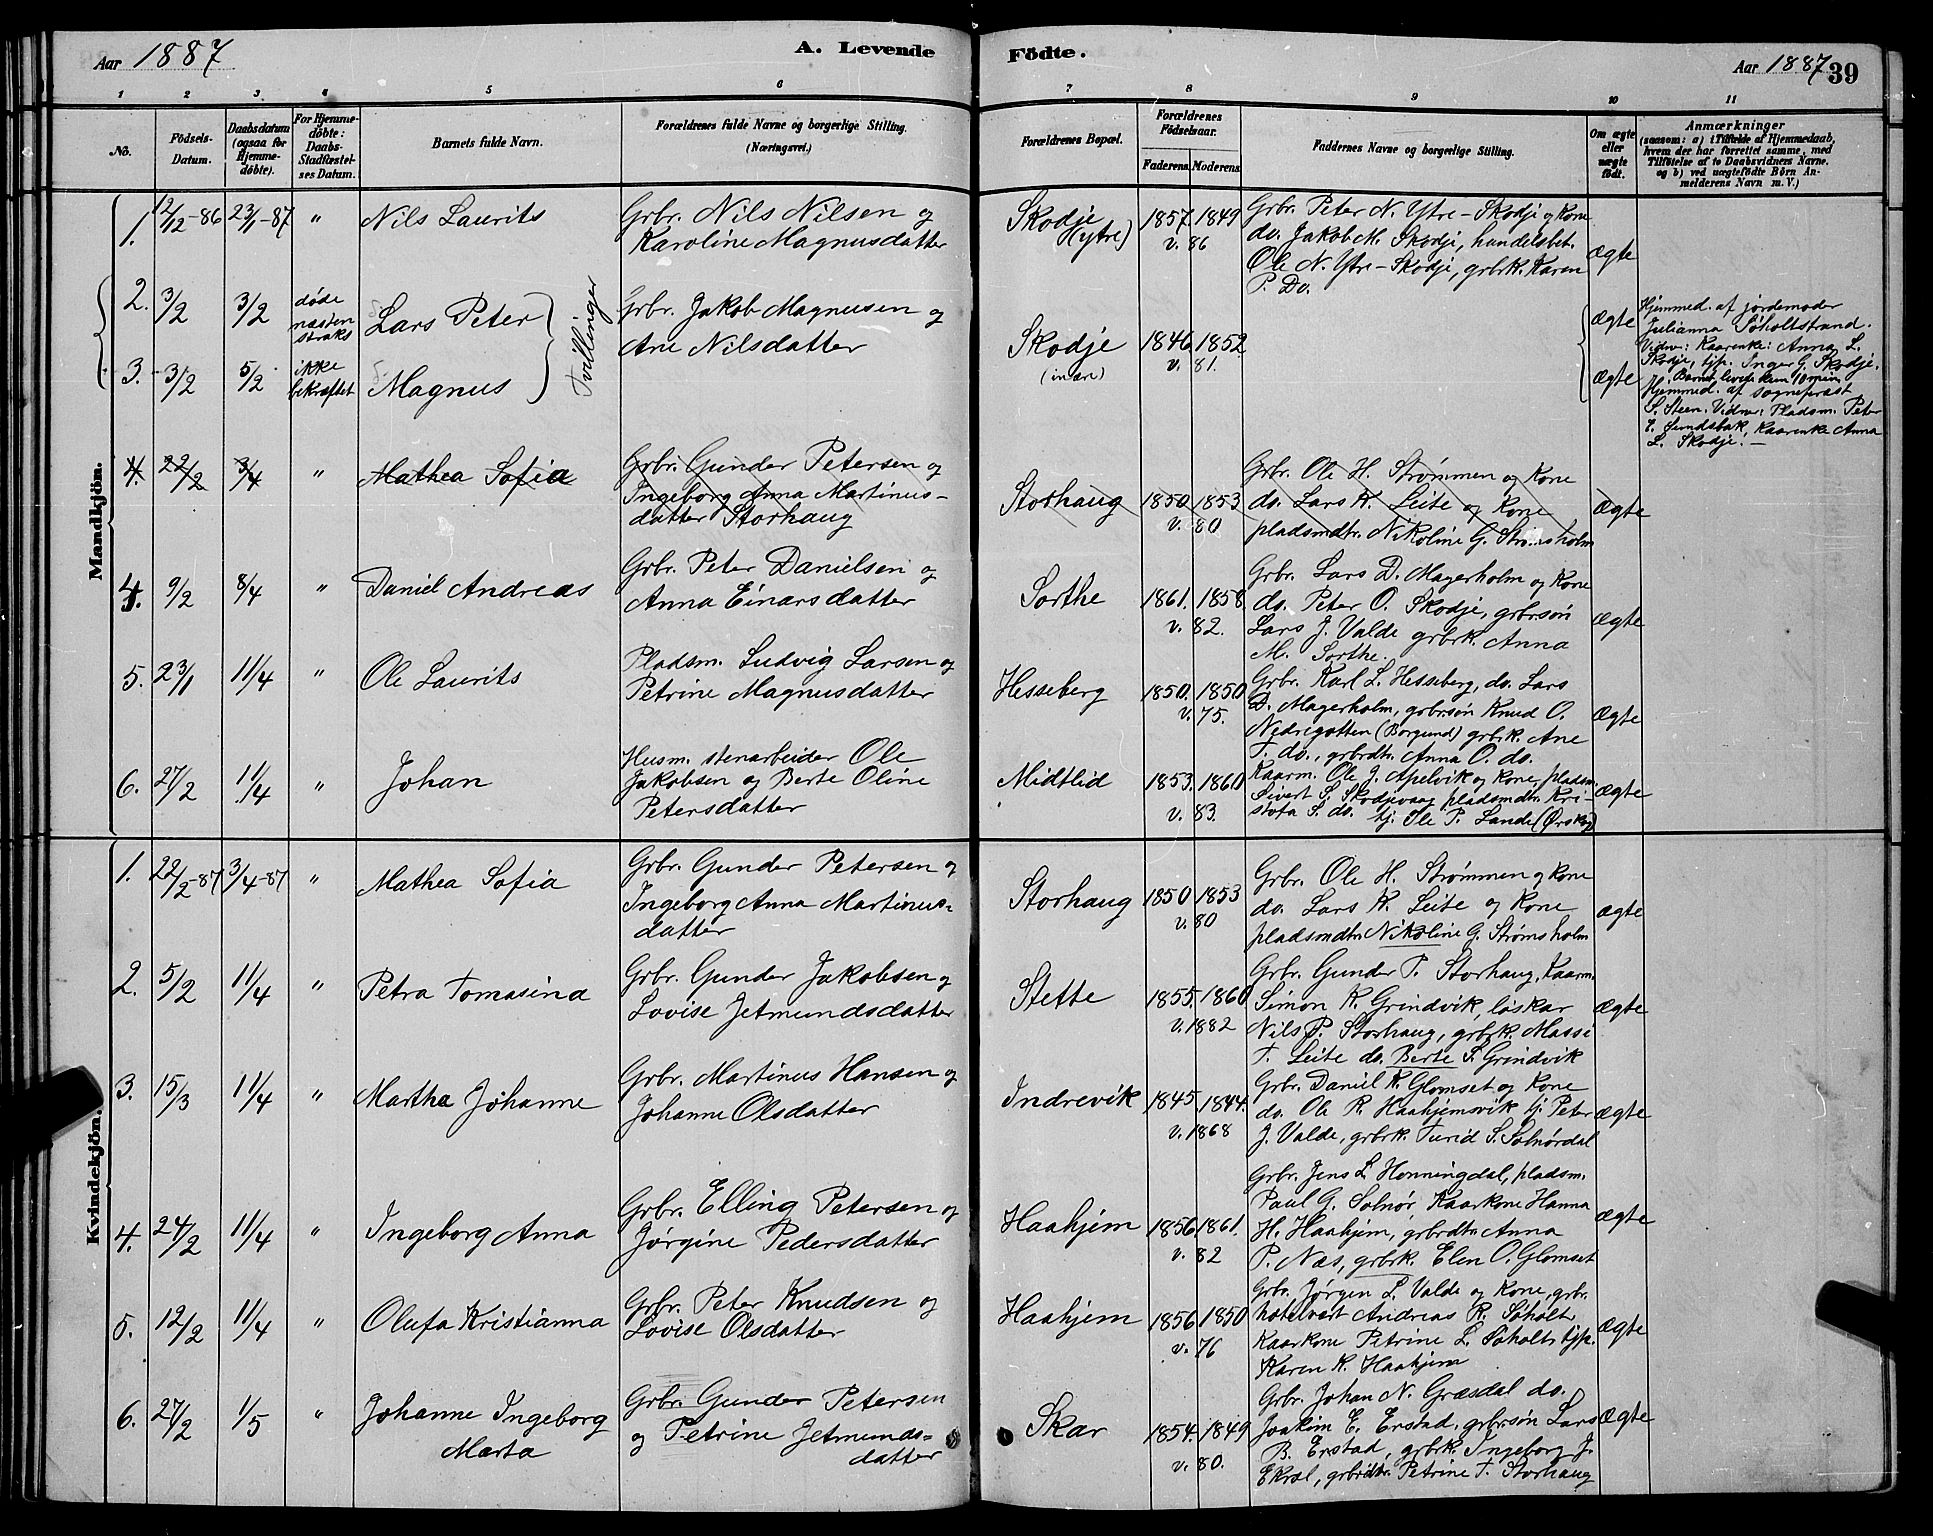 Aar 1887
A. Levende Födte.
Aar 1887 39
1 2 3 4 5 6 7 8 9 10 11
No.
Födsels-Datum.
Daabsdatum (ogsaa for Hjemme-döbte).
For Hjemme-döbte: Daabs-Stadfæstel-ses Datum.
Barnets fulde Navn.
Forældrenes fulde Navne og borgerlige Stilling. (Næringsvei.)
Forældrenes Bopæl.
Forældrenes Födselsaar.
Faderens. Moderens.
Faddernes Navne og borgerlige Stilling.
Om ægte eller uægte födt.
Anmærkninger
(saasom: a) i Tilfælde af Hjemmedaab,
hvem der har forrettet samme, med
Tilföielse af to Daabsvidners Navne.
og b) ved uægtefödte Börn An-
melderens Navn m. V.)
Mandkjön.
1. 12/12-86 23/1-87 " Nils Laurits
Grbr. Nils Nilsen og
Karoline Magnusdatter
Skodje (ytre)
1857 1849
v. 86
Grbr. Peter N. Ytre-Skodje og Kone
do. Jakob M. Skodje, handelsbet.
Ole N. Ytre-Skodje, grbrk. Karen
P. Do.
ægte
2. 3/2 3/2 døde næsten straks Lars Peter
3. 3/2 5/2 ikke bekræftet Magnus
Tvillinger
Grbr. Jakob Magnusen og
Ane Nilsdatter
Skodje
(indre)
1846 1852
v. 81.
ægte
ægte
Hjemmed. af jordemoder
Julianna Søholtstrand.
Vidner: Kaarenke: Anna L.
Skodje, tjp. Inger G. Skodje.
Barnet levede kun 10 min.
Hjemmed. af sogneprest
S. Steen. Vidner: Pladsm. Peter
E. Sundsbak, Kaarenke Anna
L. Skodje. —
4. 22/2 3/4 " Mathea Sofia
Grbr. Gunder Petersen og
Ingeborg Anna Martinus-
datter Storhaug
Storhaug
1850 1853
v. 80
Grbr. Ole H. Strømmen og Kone
do. Lars K. Leite og Kone
pladsmdtr. Nikoline G. Strømsholm
ægte
4. 9/2 8/4 " Daniel Andreas
Grbr. Peter Danielsen og
Anna Einarsdatter
Sorthe
1861. 1858
v. 82.
Grbr. Lars D. Magerholm og Kone
do. Peter O. Skodje, grbrsøn
Lars J. Valde grbrk. Anna
M. Sorthe.
ægte
5. 23/1 11/4 " Ole Laurits
Pladsm. Ludvig Larsen og
Petrine Magnusdatter
Hesseberg
1850. 1850
v. 75.
Grbr. Karl L. Hesseberg, do. Lars
D. Magerholm, grbrsøn Knud O.
Nedregotten (Borgund) grbrk. Ane
T. do., grbrdtr. Anna O. do.
ægte
6. 27/2 11/4 " Johan
Husm. stenarbeider Ole
Jakobsen og Berte Oline
Petersdatter
Midtlid
1853. 1860
v. 83.
Kaarm. Ole J. Apelvik og Kone, pladsm.
Sivert S. Skodjevaag pladsmdtr. Kri-
stofa S. do. tj. Ole P. Lande (Ørskog)
ægte
Kvindekjön.
1. 22/2-87 3/4-87 " Mathea Sofia
Grbr. Gunder Petersen og
Ingeborg Anna Martinus-
datter
Storhaug
1850 1853
v. 80
Grbr. Ole H. Strømmen og Kone
do. Lars K. Leite og Kone
pladsmdtr. Nikoline G. Strømsholm
ægte
2. 5/2 11/4 " Petra Tomasina
Grbr. Gunder Jakobsen og
Lovise Jetmundsdatter
Stette
1855. 1860
v. 1882
Grbr. Gunder P. Storhaug, Kaarm.
Simon K. Grindvik, løskar
Nils P. Storhaug, grbrk. Massi
T. Leite do. Berte S. Grindvik
ægte
3. 15/3 11/4 " Martha Johanne
Grbr. Martinus Hansen og
Johanne Olsdatter
Indrevik
1845 1844.
v. 1868
Grbr. Daniel K. Glomset og Kone
do. Ole R. Haahjemsvik tj. Peter
J. Valde, grbrk. Turid S. Solnørdal
ægte
4. 24/2 11/4 " Ingeborg Anna
Grbr. Elling Petersen og
Jørgine Pedersdatter
Haahjem
1856 1861.
v. 82
Grbr. Jens L. Honningdal, pladsm.
Paul G. Solnør Kaarkone Hanna
H. Haahjem, grbrdtr. Anna
P. Næs, grbrk. Elen O. Glomset
ægte
5. 12/2 11/4 " Olufa Kristianna
Grbr. Peter Knudsen og
Lovise Olsdatter
Haahjem
1856 1850
v. 76
Grbr. Jørgen L. Valde og Kone, grbr.
hotelvært Andreas R. Søholt,
Kaarkone Petrine L. Søholt, tjp.
Karen K. Haahjem
ægte
6. 27/2 1/5 " Johanne Ingeborg
Marta
Grbr. Gunder Petersen
og Petrine Jetmunds-
datter
Skar
1854. 1849
v. 80.
Grbr. Johan N. Græsdal do.
Joakim E. Erstad, grbrsøn Lars
B. Erstad, grbrk. Ingeborg J.
Ekrol, grbrdtr. Petrine T. Storhaug
ægte